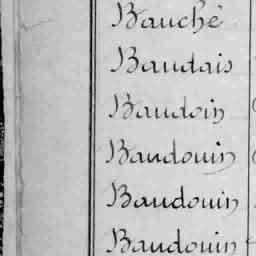 Bauché
Baudais
Baudoin
Baudouin
Baudouin
Baudouin